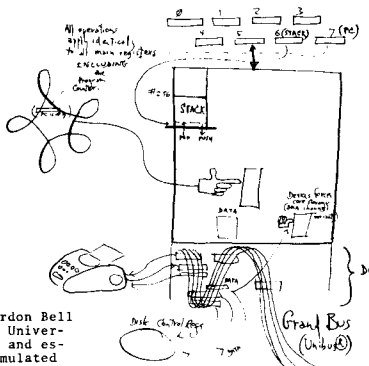 0 1 2 3
4 5 6 (STACK) 7 (PC)
All operations
apply identically
to all main registers
INCLUDING
the
Program
Counter.
STACK
POP PUSH
DATA
Devices
DATA
Grand Bus
(Unibus®)
Disk Control Regs
rdon Bell
Univer-
and es-
mulated